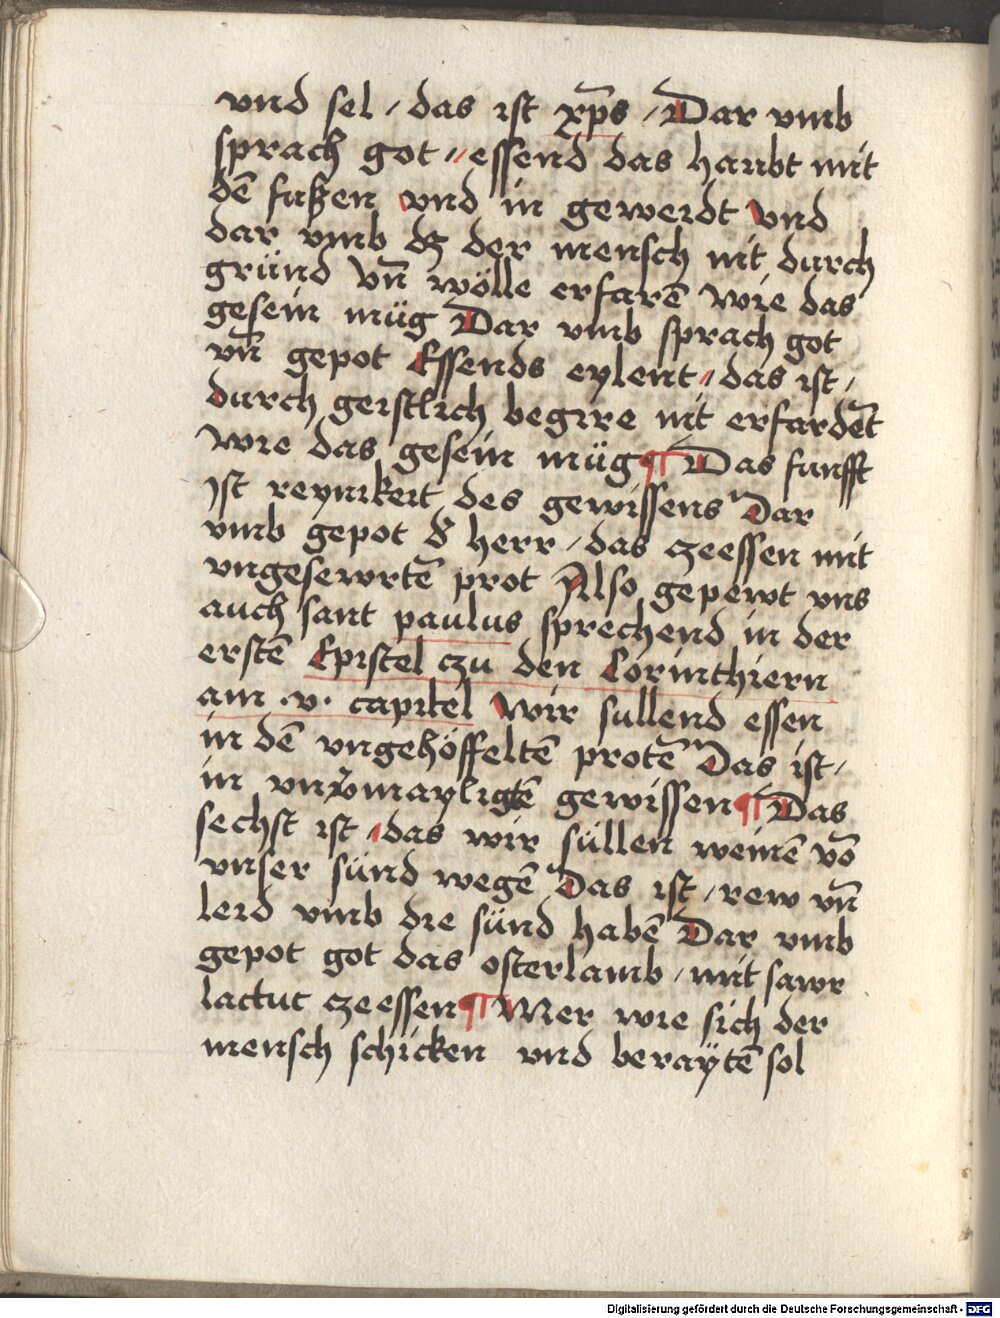 vnd sel / das ist xp̄s / Dar vmb
sprach got // essend das haubt mit
dē fußen vnd in geweidt vnd
dar vmb dz der mensch nit durch
gründ vn̄ wölle erfarē wie das
gesein müg Dar vmb sprach got
vn̄ gepot Essends eylent // das ist /
durch geistlich begire nit erfardēt
wie das gesein müg ¶ Das funfft
Ist reynikeit des gewissens Dar
vmb gepot d' herr / das czeessen mit
vngesewrtē prot Also gepewt vns
auch sant paulus sprechend in der
erstē Epistel czu den Corinthiern
am .v. capitel Wir sullend essen
in dē vngehöffeltē protē Das ist /
in vnv'mayligtē gewissen ¶ Das
sechst ist / das wir süllen weinē vō
vnser sünd wegē Das ist / rew vn̄
leid vmb die sünd habē Dar vmb
gepot got das osterlamb / mit sawr
lactuc czeessen ¶ Mer wie sich der
mensch schicken vnd beraÿtē sol
Digitalisierung gefördert durch die Deutsche Forschungsgemeinschaft - DFG